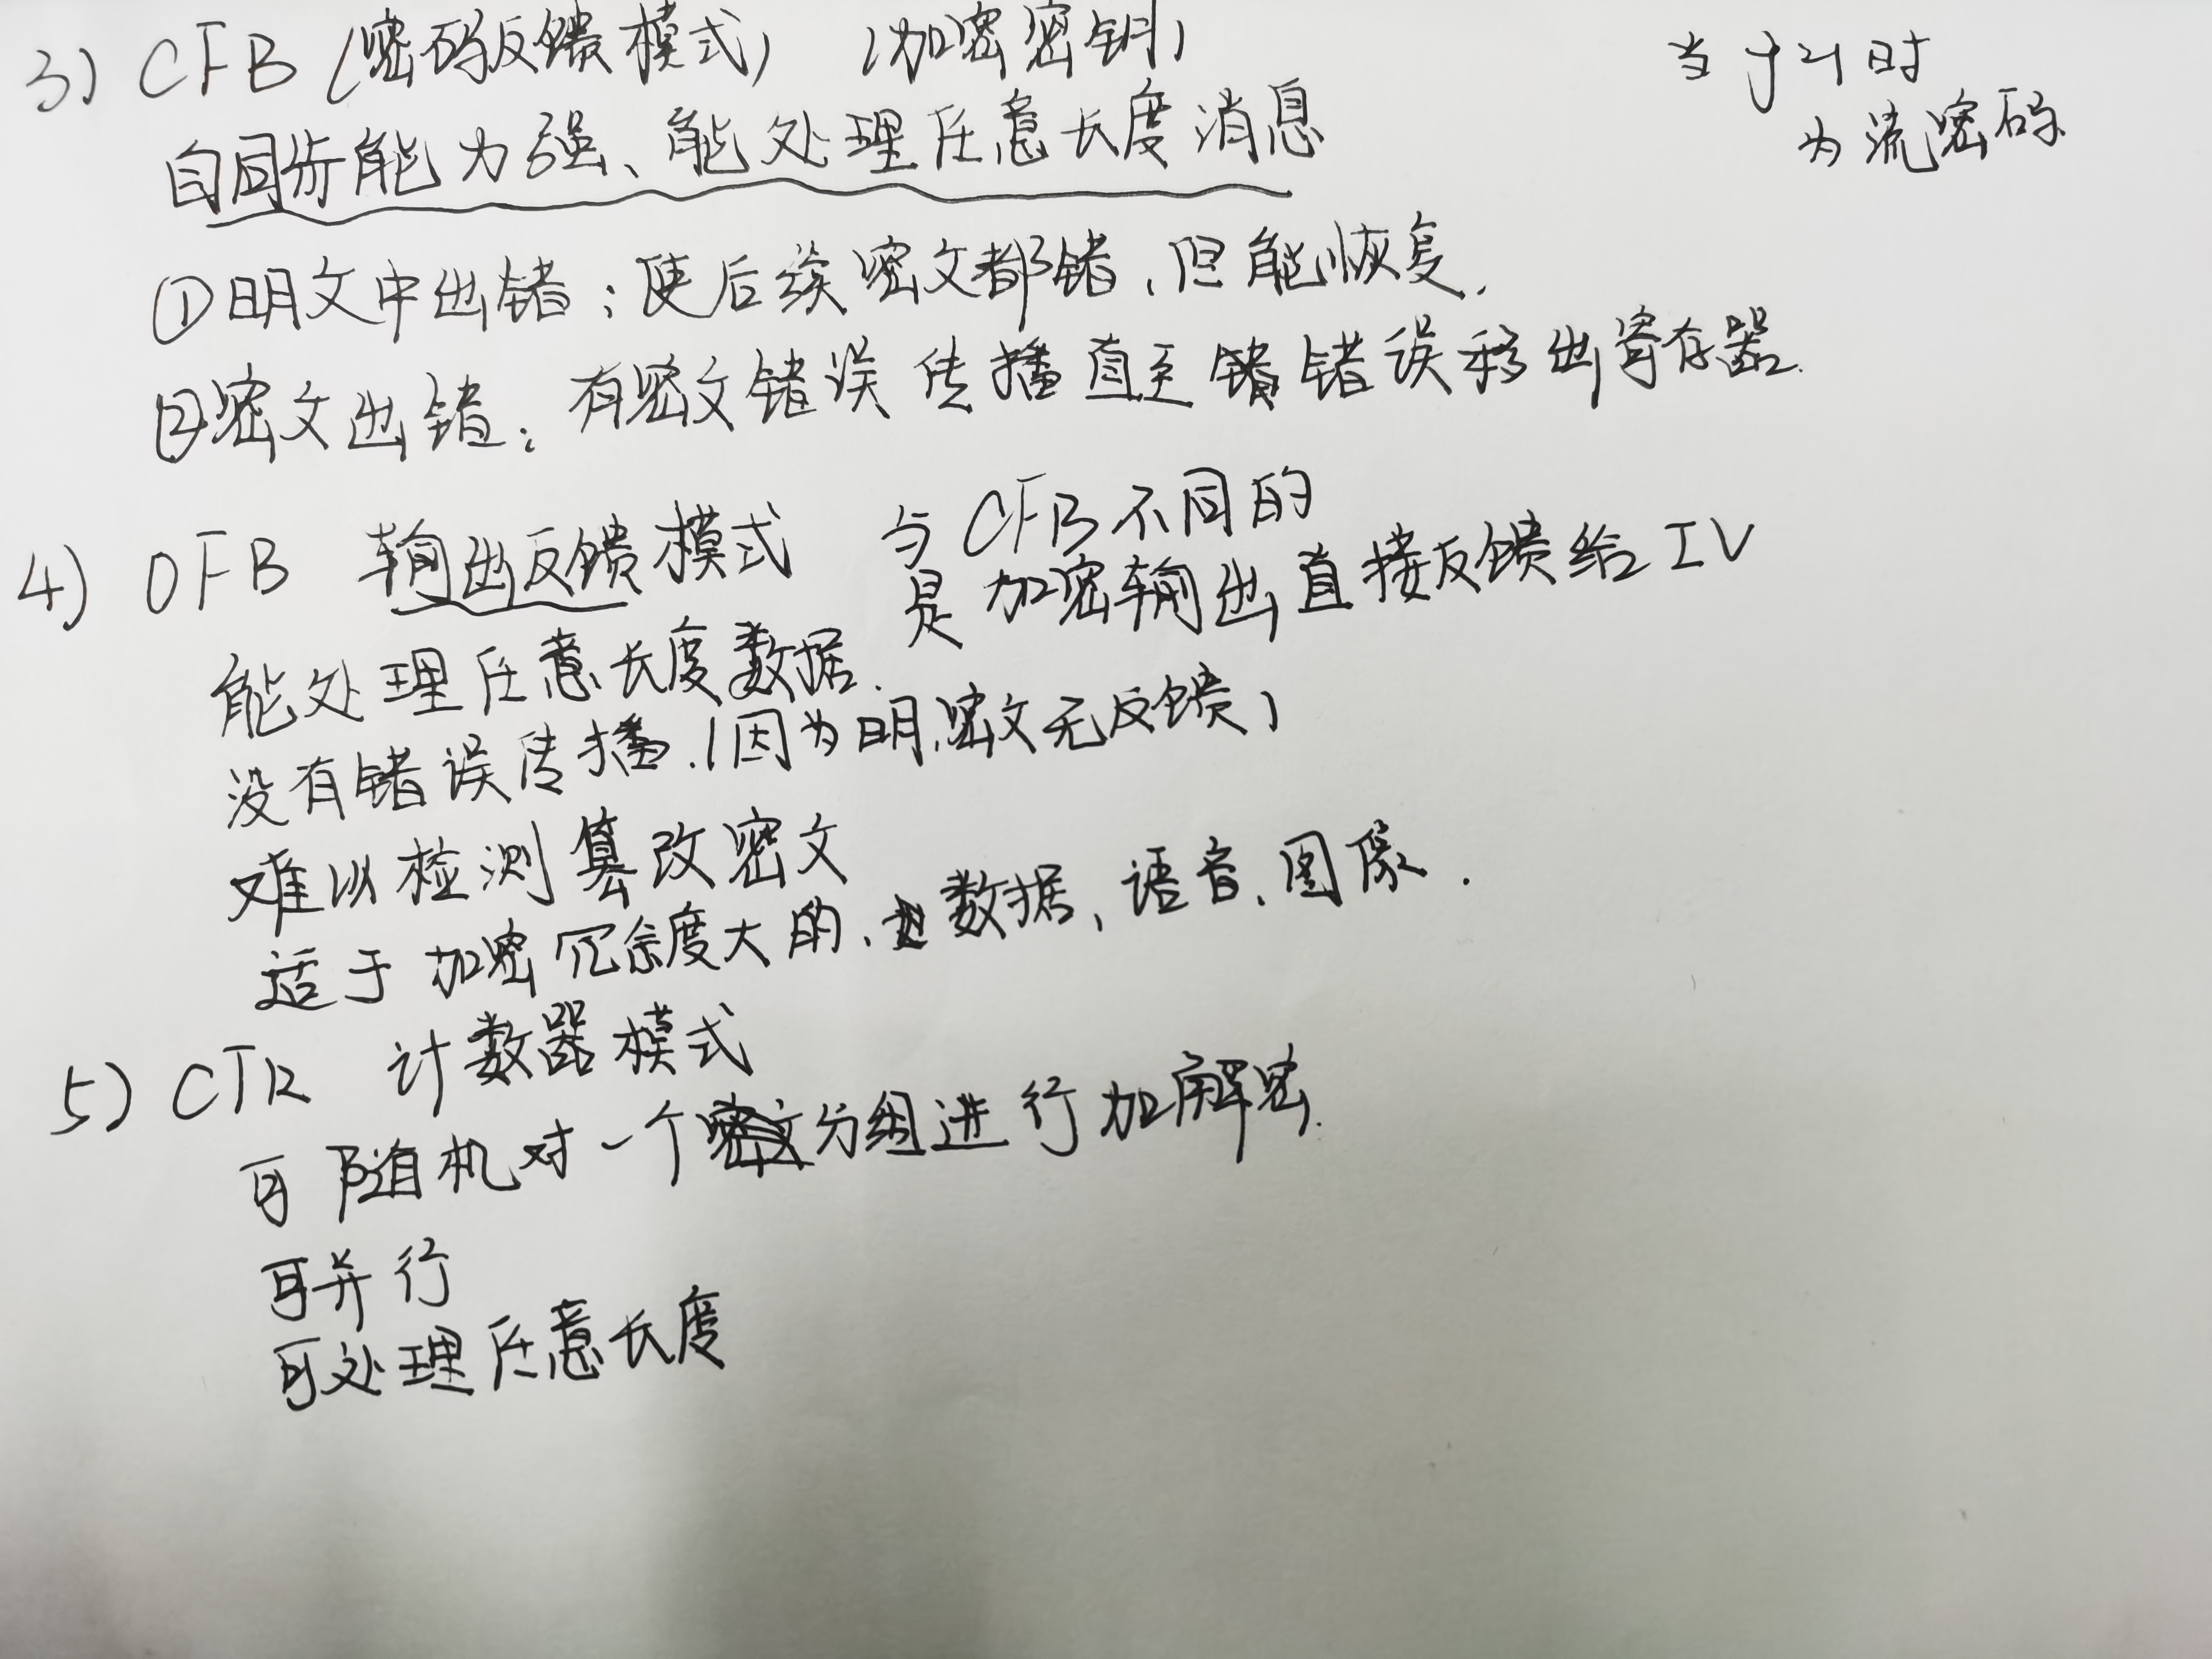 3) CFB (密码反馈模式) (加密密钥)
当 j=1 时
为流密码
自同步能力强、能处理任意长度消息
①明文中出错；使后续密文都错，但能恢复.
②密文出错：有密文错误传播直至错误移出寄存器.
4) OFB 输出反馈模式 与CFB不同的
是加密输出直接反馈给IV
能处理任意长度数据.
没有错误传播.(因为明.密文无反馈)
难以检测篡改密文
适于加密冗余度大的、数据、语音、图像.
5) CTR 计数器模式
可随机对一个分组进行加解密.
可并行
可处理任意长度